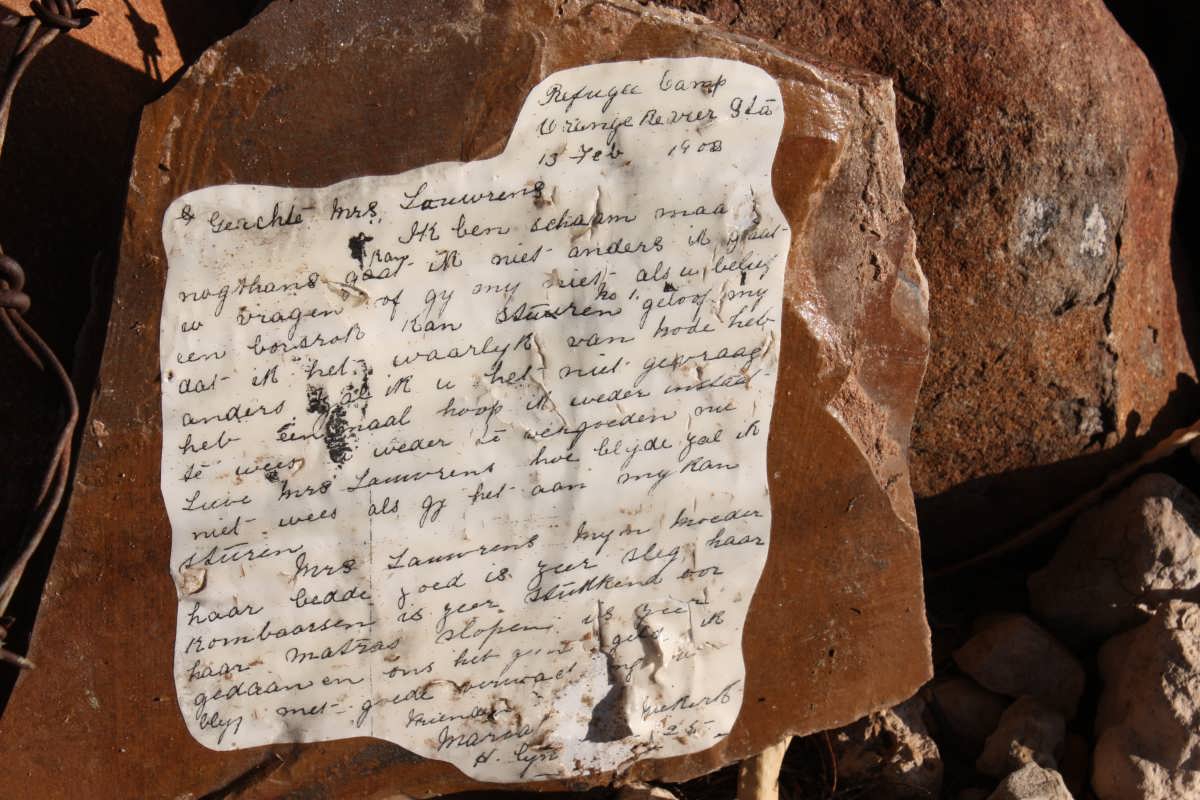 Refugee Camp
Orange Revier Sta
13 Feb 1903
Geachte Mrs. Lauwrens
Ik ben schaam maa
kan
nogthans gaat ik niet anders ik
u vragen of gy my niet als u belief
een borsrok kan stuuren geloof my
dat ik het waarlyk van node heb
anders zal ik u het niet gevraag
heb eenmaal hoop ik weder instaat
te wees u weder te vergoeden nu
Lieve Mrs Lauwrens hoe blyde zal ik
niet wees als gy het aan my kan
sturen
Mrs Lauwrens Myn Moeder
haar bedde goed is zeer sleg haar
kombaarsen is zeer stukkend oor
haar matras slopen is zeer
gedaan en ons het geen geld ik
blyf met goede
Vriendin
Maria
H. Lyn 25